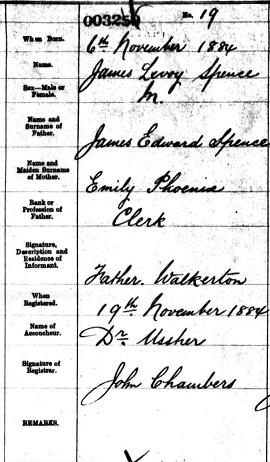 003250 No. 19
When Born. 6th November 1884
Name. James Levoy Spence
Sex—Male or Female. M.
Name and Surname of Father. James Edward Spence
Name and Maiden Surname of Mother. Emily Phoenia
Rank or Profession of Father. Clerk
Signature, Description and Residence of Informant. Father. Walkerton
When Registered. 19th November 1884
Name of Accoucheur. Dr. Ussher
Signature of Registrar. John Chambers
REMARKS.